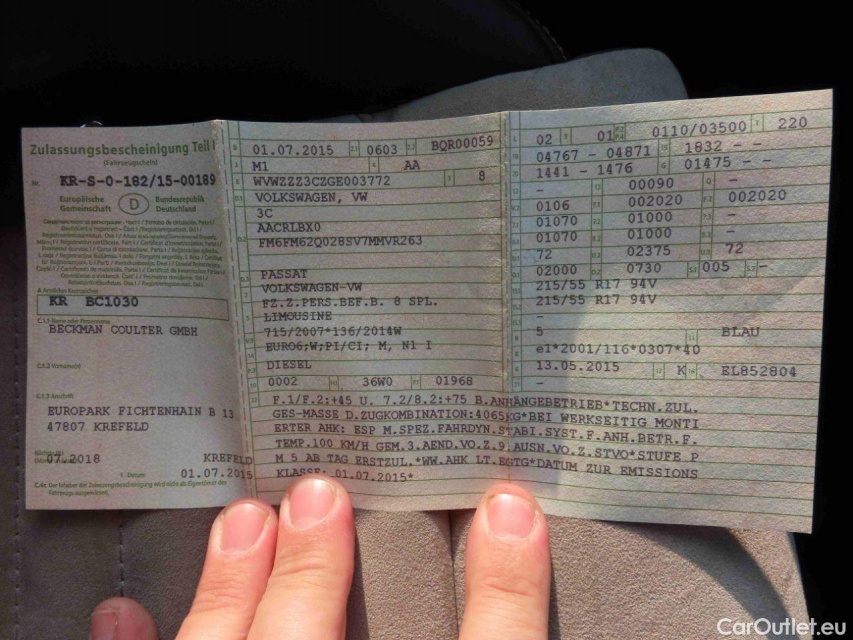 Zulassungsbescheinigung Teil I
(Fahrzeugschein)
Nr. KR-S-0-182/15-00189
Europäische Gemeinschaft
D
Bundesrepublik Deutschland
KR BC1030
C.1.1
BECKMAN COULTER GMBH
C.1.2 Vorname(n)
C.1.3 Anschrift
EUROPARK FICHTENHAIN B 13
47807 KREFELD
07.2018
KREFELD
01.07.2015
C.4c Der Inhaber der Zulassungsbescheinigung wird nicht als Eigentümer des Fahrzeugs ausgewiesen.
01.07.2015 0603 BQR00059
M1 AA
WVWZZZ3CZGE003772 8
VOLKSWAGEN, VW
3C
AACRLBX0
FM6FM62Q028SV7MMVR263
PASSAT
VOLKSWAGEN-VW
FZ.Z.PERS.BEF.B. 8 SPL.
LIMOUSINE
715/2007*136/2014W
EURO6;W;PI/CI; M, N1 I
DIESEL
0002 36W0 01968
02 01 0110/03500 220
04767 - 04871 1832 - -
1441 - 1476 01475 - -
- 00090 -
0106 002020 002020
01070 01000 -
01070 01000 -
72 02375 72
02000 0730 005 -
215/55 R17 94V
215/55 R17 94V
-
5 BLAU
e1*2001/116*0307*40
13.05.2015 K EL852804
-
F.1/F.2:+45 U. 7.2/8.2:+75 B.ANHÄNGEBETRIEB*TECHN.ZUL.
GES-MASSE D.ZUGKOMBINATION:4065KG*BEI WERKSEITIG MONTI
ERTER AHK: ESP M.SPEZ.FAHRDYN.STABI.SYST.F.ANH.BETR.F.
TEMP.100 KM/H GEM.3.AEND.VO.Z.9.AUSN.VO.Z.STVO*STUFE P
M 5 AB TAG ERSTZUL.*WW.AHK LT.EGTG*DATUM ZUR EMISSIONS
KLASSE: 01.07.2015*
CarOutlet.eu